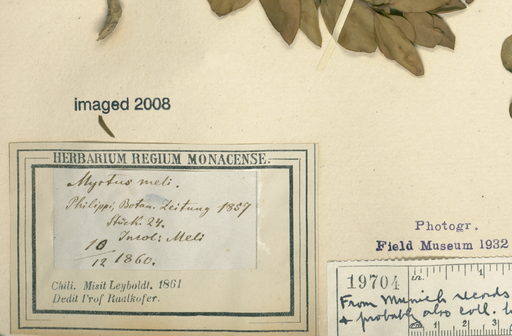 imaged 2008
HERBARIUM REGIUM MONACENSE.
Myrtus meli.
Philippi, Botan. Zeitung 1857
Stück. 24.
Incol: Meli
10/12 1860.
Chili. Misit Leyboldt. 1861
Dedit Prof Radlkofer.
Photogr.
Field Museum 1932
19704
From Munich records
& probably also coll.
1 2 3